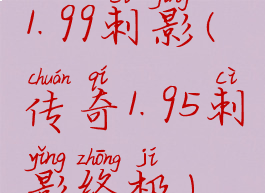 1.99刺影(
chuán qí cì
传奇1.95刺
yǐng zhōng jí
影终极)